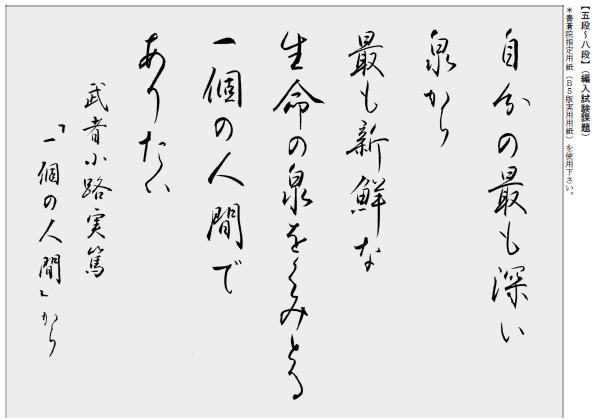 【五段～八段】（編入試験課題）
＊書藝院指定用紙（Ｂ５版実用用紙）を使用下さい。
自分の最も深い
泉から
最も新鮮な
生命の泉をくみとる
一個の人間で
ありたい
武者小路実篤
「一個の人間」から